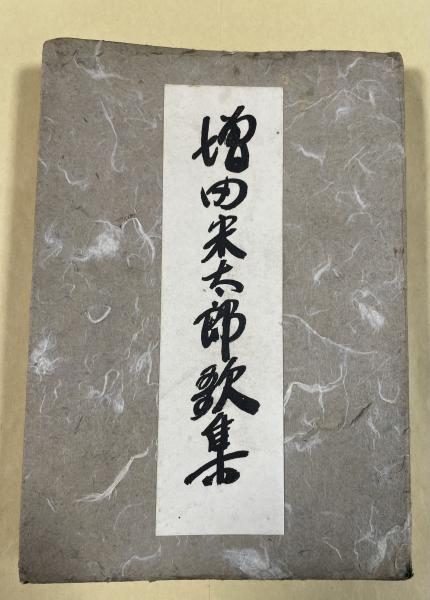 増田米太郎歌集